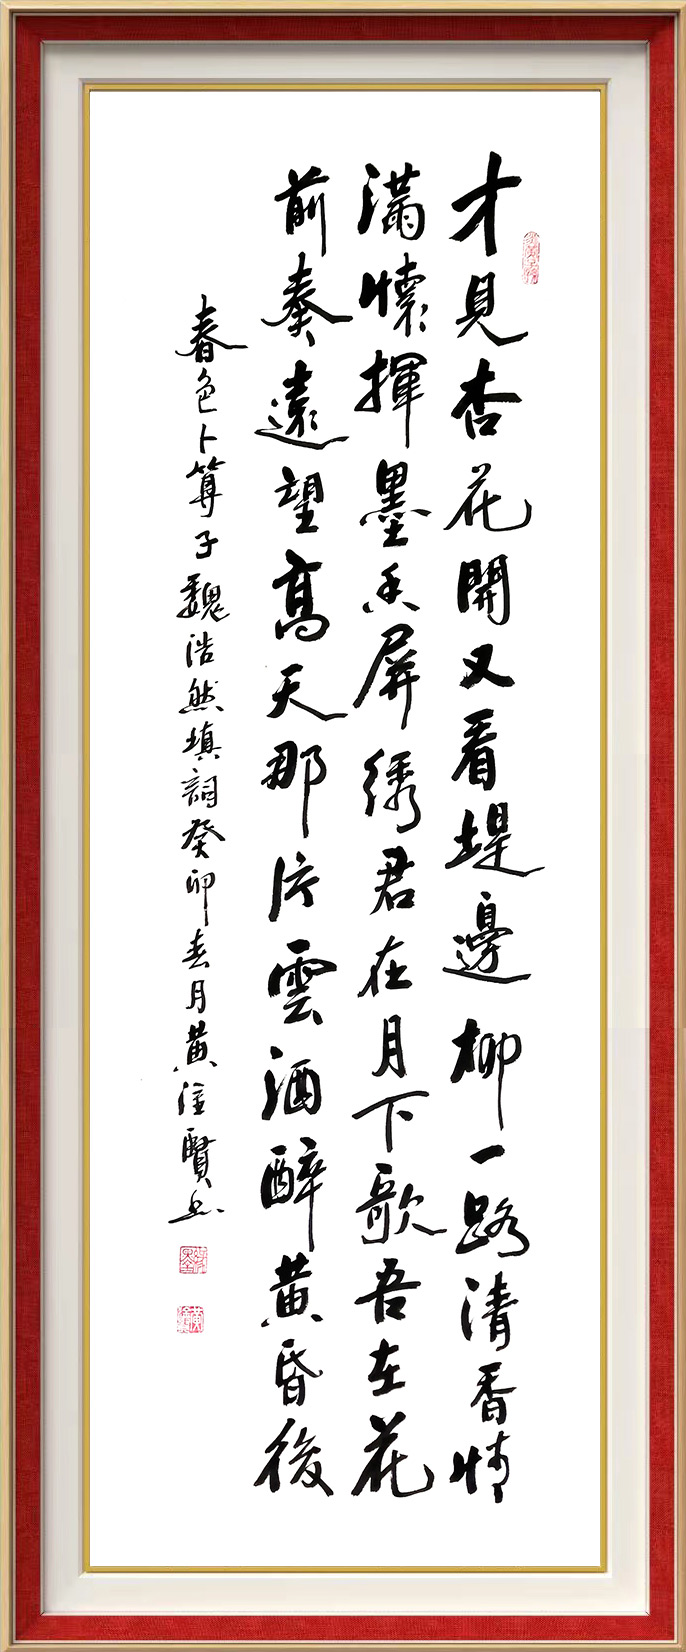 才見杏花開又看堤邊柳一路清香情
滿懷揮墨香屏綉君在月下歌吾在花
前奏遠望高天那片雲酒醉黃昏後
春色卜算子魏浩然填詞癸卯春月黃達賢書